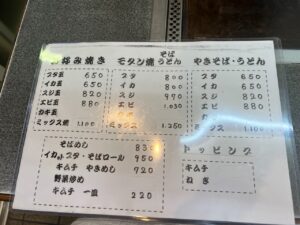 お好み焼き
ブタ玉 650
イカ玉 650
スジ玉 820
エビ玉 880
カキ玉
ミックス焼 1,100
モダン焼 そば うどん
ブタ 800
イカ 800
スジ 970
エビ 1,030
カキ
ミックス 1,250
やきそば・うどん
ブタ 650
イカ 650
スジ 820
エビ 880
カキ
ミックス 1,100
そばめし 830
イカ ブタ・そばロール 950
キムチ やきめし 720
野菜炒め
キムチ 一皿 220
トッピング
キムチ
ねぎ